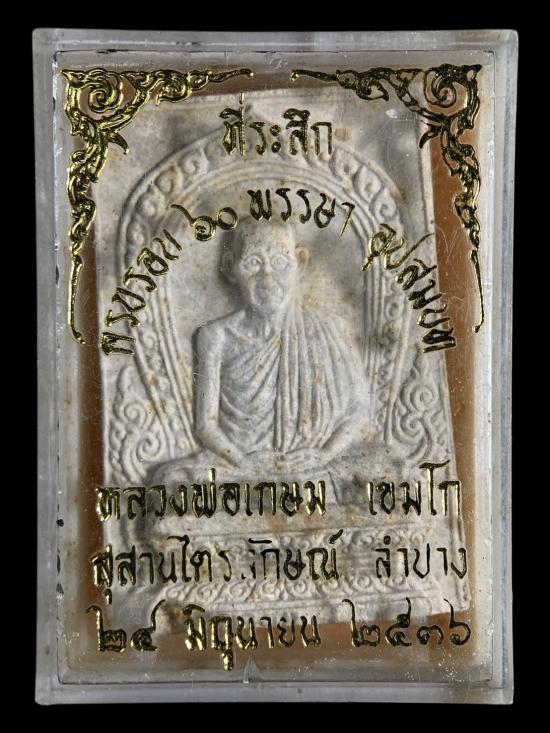 ที่ระลึก
ครบรอบ ๖๐ พรรษา อุปสมบท
หลวงพ่อเกษม เขมโก
สุสานไตรลักษณ์ ลำปาง
๒๘ มิถุนายน ๒๕๓๖